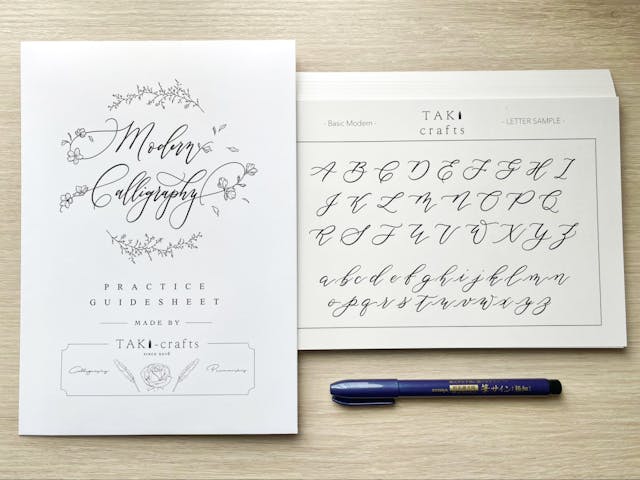 Modern
Calligraphy
PRACTICE
GUIDESHEET
MADE BY
TAKI-crafts
since 2016
Calligraphy
- Basic Modern -
TAKI
crafts
- LETTER SAMPLE -
A B C D E F G H I
J K L M N O P Q
R S T U V W X Y Z
a b c d e f g h i j k l m n
o p q r s t u v w x y z
ZEBRA 筆サイン